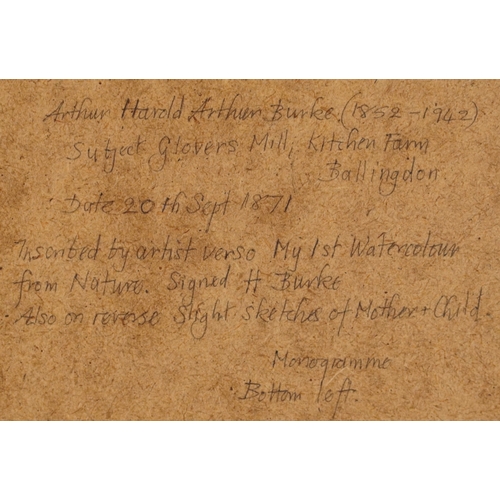 Arthur Harold Arthur Burke. (1852-1942)
Subject Glovers Mill, Kitchen Farm
Ballingdon.
Date 20th Sept 1871
Inscribed by artist verso My 1st Watercolour
from Nature. Signed H Burke
Also on reverse slight sketches of Mother + Child.
Monogramme
Bottom left.